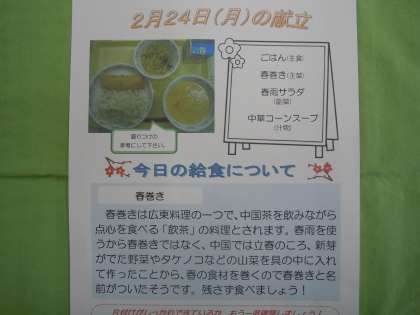 2月24日(月)の献立
ごはん(主食)
春巻き(主菜)
春雨サラダ
(副菜)
中華コーンスープ
(汁物)
盛りつけの
参考にして下さい。
今日の給食について
春巻き
春巻きは広東料理の一つで、中国茶を飲みながら
点心を食べる「飲茶」の料理とされます。春雨を使
うから春巻きではなく、中国では立春のころ、新芽
がでた野菜やタケノコなどの山菜を具の中に入れ
て作ったことから、春の食材を巻くので春巻きと名
前がついたそうです。残さず食べましょう！